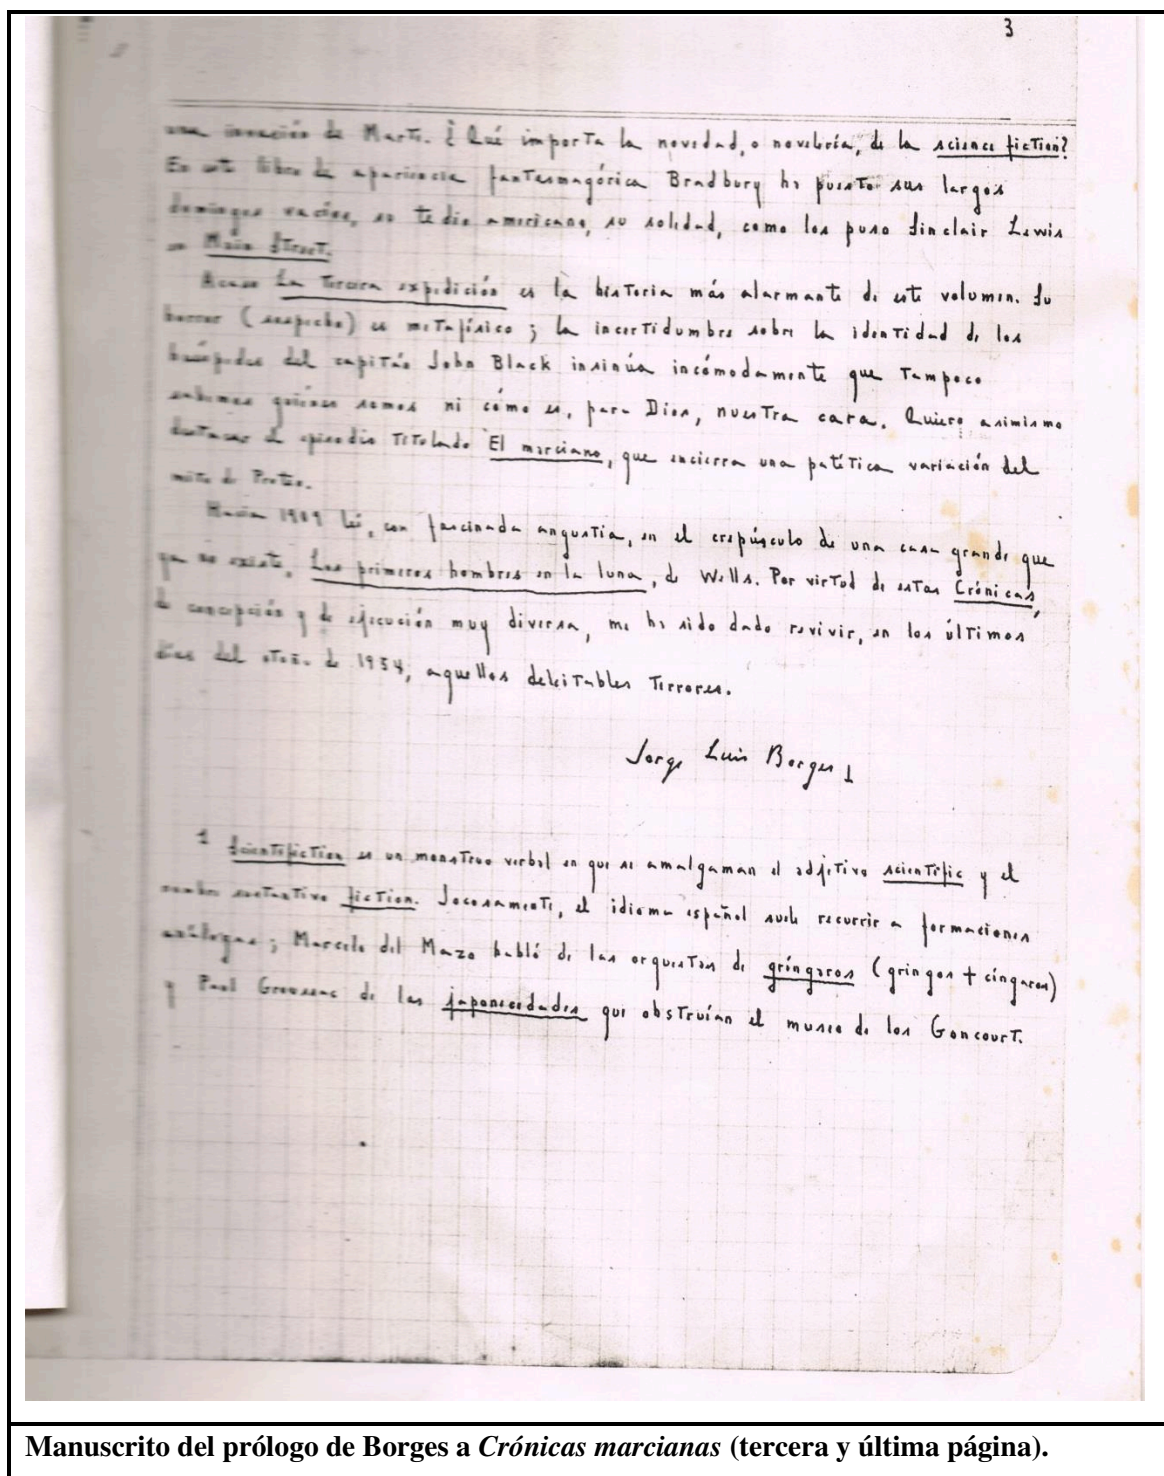 3
una invasión de Marte. ¿Qué importa la novedad, o novelería, de la science fiction?
En este libro de apariencia fantasmagórica Bradbury ha puesto sus largos
domingos vacíos, su tedio americano, su soledad, como los puso Sinclair Lewis
en Main Street.
Acaso La tercera expedición es la historia más alarmante de este volumen. Su
horror (sospecho) es metafísico; la incertidumbre sobre la identidad de los
huéspedes del capitán John Black insinúa incómodamente que tampoco
sabemos quiénes somos ni cómo es, para Dios, nuestra cara. Quiero asimismo
destacar el episodio titulado El marciano, que encierra una patética variación del
mito de Proteo.
Hacia 1909 leí, con fascinada angustia, en el crepúsculo de una casa grande que
ya no existe, Los primeros hombres en la luna, de Wells. Por virtud de estas Crónicas,
de concepción y de ejecución muy diversa, me ha sido dado revivir, en los últimos
días del otoño de 1954, aquellos deleitables terrores.
Jorge Luis Borges 1
1 Scientifiction es un monstruo verbal en que se amalgaman el adjetivo scientific y el
nombre sustantivo fiction. Jocosamente, el idioma español suele recurrir a formaciones
análogas; Marcelo del Mazo habló de las orquestas de gríngaros (gringos + cíngaros)
y Paul Groussac de las japonecedades que obstruían el museo de los Goncourt.
Manuscrito del prólogo de Borges a Crónicas marcianas (tercera y última página).